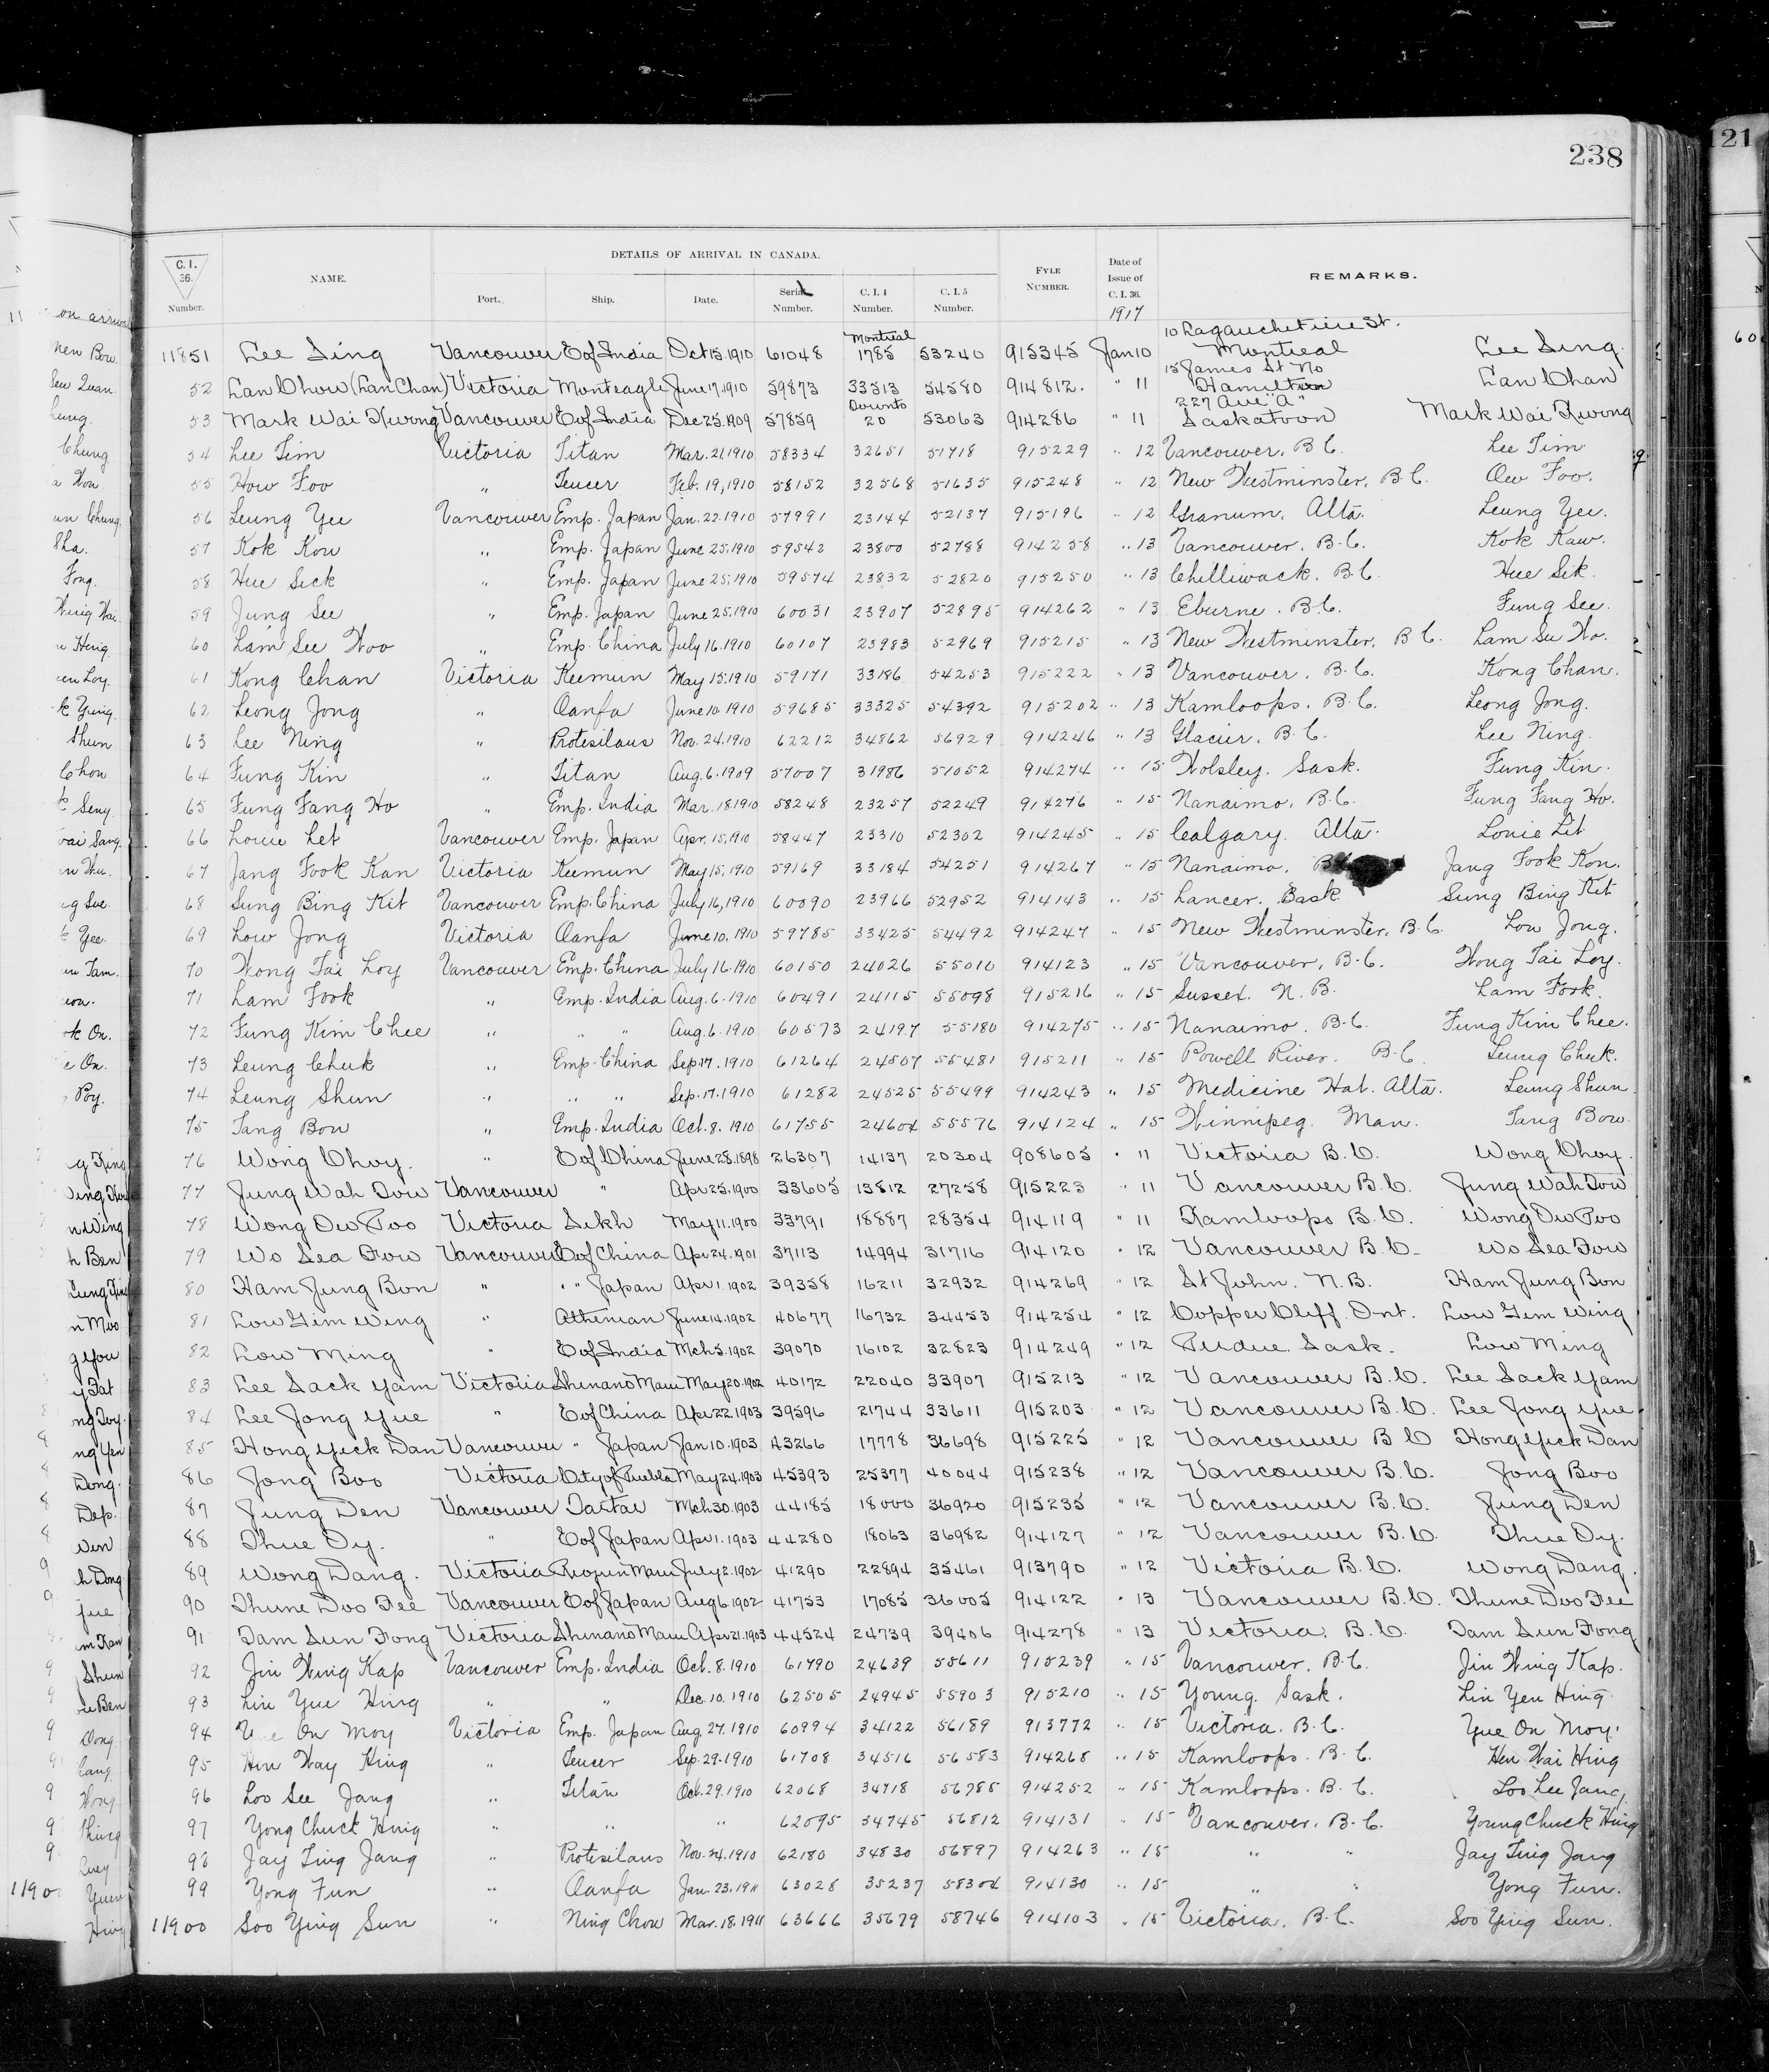 238
121
C. I. 36. Number. NAME. DETAILS OF ARRIVAL IN CANADA. Port. Ship. Date. Serial Number. C. I. 4 Number. C. I. 5 Number. FYLE NUMBER. Date of Issue of C. I. 36. 1917 REMARKS.
10 Lagauchetiere St.
11851 Lee Sing Vancouver E of India Oct 15.1910 61048 Montreal 1785 53240 915345 Jan 10 Montreal Lee Sing
15 James St No
52 Lan Chow (Lan Chan) Victoria Monteagle June 17.1910 59873 33513 54580 914812. " 11 Hamilton Lan Chan
227 Ave "A"
53 Mark Wai Kwong Vancouver E of India Dec 25.1909 57859 20 53063 914286 " 11 Saskatoon Mark Wai Kwong
54 Lee Tim Victoria Titan Mar. 21.1910 58334 32651 51718 915229 " 12 Vancouver, B.C. Lee Tim
55 How Foo " Teucer Feb. 19,1910 58152 32568 51635 915248 " 12 New Westminster, B.C. Qew Foo.
56 Leung Yee Vancouver Emp. Japan Jan. 22.1910 57991 23144 52137 915196 " 12 Granum, Alta. Leung Yee.
57 Kok Kow " Emp. Japan June 25.1910 59542 23800 52788 914258 " 13 Vancouver, B.C. Kok Kaw.
58 Hue Sick " Emp. Japan June 25.1910 59574 23832 52820 915250 " 13 Chilliwack, B.C. Hue Sik.
59 Jung See " Emp. Japan June 25.1910 60031 23907 52895 914262 " 13 Eburne, B.C. Fung See.
60 Lam See Woo " Emp. China July 16.1910 60107 23983 52969 915215 " 13 New Westminster, B.C. Lam See Wo.
61 Kong Chan Victoria Keemun May 15.1910 59171 33186 54253 915222 " 13 Vancouver, B.C. Kong Chan.
62 Leong Jong " Oanfa June 10.1910 59685 33325 54392 915202 " 13 Kamloops, B.C. Leong Jong.
63 Lee Ning " Protesilaus Nov. 24.1910 62212 34862 56929 914246 " 13 Glacier, B.C. Lee Ning.
64 Fung Kin " Titan Aug. 6.1909 57007 31986 51052 914274 " 15 Wolsley, Sask. Fung Kin.
65 Fung Fang Ho " Emp. India Mar. 18.1910 58248 23257 52249 914276 " 15 Nanaimo, B.C. Fung Fang Ho.
66 Louie Let Vancouver Emp. Japan Apr. 15.1910 58447 23310 52302 914245 " 15 Calgary, Alta. Louie Lit
67 Jang Fook Kan Victoria Keemun May 15.1910 59169 33184 54251 914267 " 15 Nanaimo, Jang Fook Kon.
68 Sung Bing Kit Vancouver Emp. China July 16,1910 60090 23966 52952 914143 " 15 Lancer, Sask Sung Bing Kit
69 Low Jong Victoria Oanfa June 10.1910 59785 33425 54492 914247 " 15 New Westminster, B.C. Low Jong.
70 Wong Tai Loy Vancouver Emp. China July 16.1910 60150 24026 55010 914123 " 15 Vancouver, B.C. Wong Tai Loy.
71 Lam Fook " Emp. India Aug. 6.1910 60491 24115 55098 915216 " 15 Sussex, N.B. Lam Fook.
72 Fung Kim Chee " " " Aug. 6.1910 60573 24197 55180 914275 " 15 Nanaimo, B.C. Fung Kim Chee.
73 Leung Chuk " Emp. China Sep. 17.1910 61264 24507 55481 915211 " 15 Powell River, B.C. Leung Chuk.
74 Leung Shun " " " Sep. 17.1910 61282 24525 55499 914243 " 15 Medicine Hat, Alta. Leung Shun
75 Tang Bow " Emp. India Oct. 8.1910 61755 24604 55576 914124 " 15 Winnipeg, Man. Tang Bow
76 Wong Choy. " E of China June 28.1898 26307 14137 20304 908605 " 11 Victoria B.C. Wong Choy.
77 Jung Wah Dow Vancouver " Apr 25.1900 33605 13812 27258 915223 " 11 Vancouver B.C. Jung Wah Dow
78 Wong Ow Poo Victoria Sikh May 11.1900 33791 18887 28354 914119 " 11 Kamloops B.C. Wong Ow Poo
79 Wo Sea Fow Vancouver E of China Apr 24.1901 37113 14994 31716 914120 " 12 Vancouver B.C. Wo Sea Fow
80 Ham Jung Bon " " " Japan Apr 1.1902 39358 16211 32932 914269 " 12 St John, N.B. Ham Jung Bon
81 Low Gim Wing " Athenian June 14.1902 40677 16732 34453 914254 " 12 Copper Cliff, Ont. Low Gim Wing
82 Low Ming " E of India Mch 5.1902 39070 16102 32823 914249 " 12 Perdue, Sask. Low Ming
83 Lee Sack Yam Victoria Shinano Maru May 20.1902 40172 22040 33907 915213 " 12 Vancouver B.C. Lee Sack Yam
84 Lee Jong Yue " E of China Apr 22.1903 39596 21744 33611 915203 " 12 Vancouver B.C. Lee Jong Yue
85 Hong Yick Dan Vancouver " Japan Jan 10.1903 43266 17778 36698 915225 " 12 Vancouver B C Hong Yick Dan
86 Jong Boo Victoria City of Puebla May 24.1903 45393 25377 40044 915238 " 12 Vancouver B.C. Jong Boo
87 Jung Den Vancouver Tartar Mch 30.1903 44185 18000 36920 915235 " 12 Vancouver B.C. Jung Den
88 Thue Dy. " E of Japan Apr 1.1903 44280 18063 36982 914127 " 12 Vancouver B.C. Thue Dy.
89 Wong Dang. Victoria Riojun Maru July 2.1902 41290 22894 35461 913790 " 12 Victoria B.C. Wong Dang.
90 Thune Doo Fee Vancouver E of Japan Aug 6.1902 41753 17085 36005 914122 " 13 Vancouver B.C. Thune Doo Fee
91 Dam Sun Fong Victoria Shinano Maru Apr 21.1903 44524 24739 39406 914278 " 13 Victoria, B.C. Dam Sun Fong
92 Jin Wing Kap Vancouver Emp. India Oct. 8.1910 61790 24639 55611 915239 " 15 Vancouver, B.C. Jin Wing Kap.
93 Lin Yue Hing " " Dec. 10.1910 62505 24945 55903 915210 " 15 Young, Sask. Lin Yen Hing
94 On Moy Victoria Emp. Japan Aug. 27.1910 60994 34122 56189 913772 " 15 Victoria, B.C. Yue On Moy.
95 Hen Way Hing " Teucer Sep. 29.1910 61708 34516 56583 914268 " 15 Kamloops, B.C. Hen Wai Hing
96 Loo See Jang " Titan Oct. 29.1910 62068 34718 56785 914252 " 15 Kamloops, B.C. Loo Lee Jang,
97 Yong Chuck Hing " " " 62095 34745 56812 914131 " 15 Vancouver, B.C. Young Chuck Hing
98 Jay Ting Jang " Protesilaus Nov. 24.1910 62180 34830 56897 914263 " 15 " " Jay Ting Jang
99 Yong Fun " Oanfa Jan. 23.1911 63028 35237 58304 914130 " 15 " " Yong Fun.
11900 Soo Ying Sun " Ning Chow Mar. 18.1911 63666 35679 58746 914103 " 15 Victoria, B.C. Soo Ying Sun.